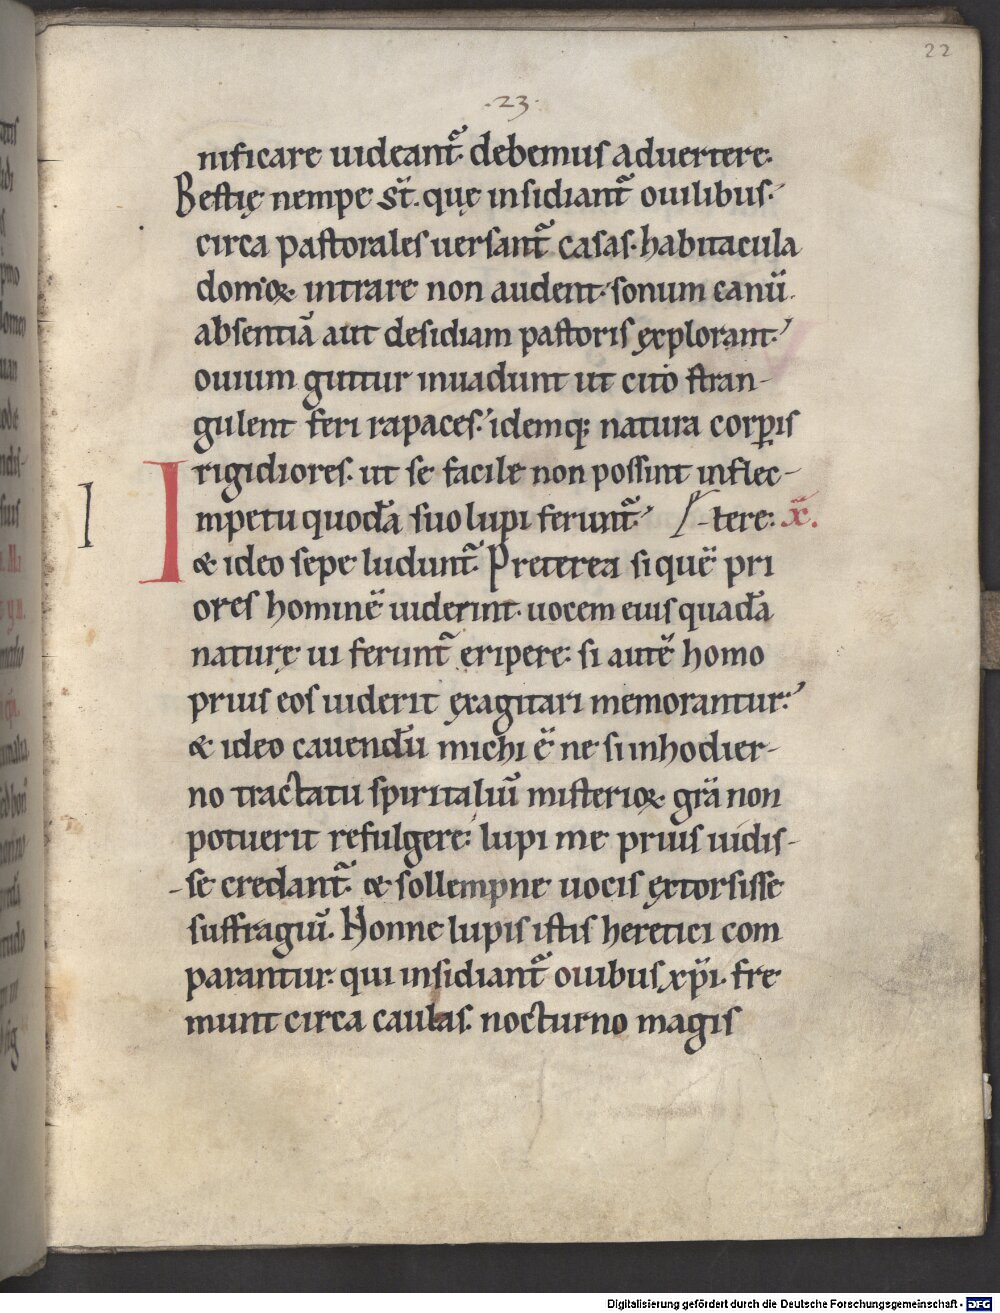 22
·23·
nificare uideant᷑. debemus aduertere.
Bestię nempe st̅. quę insidiant᷑ ouilibus.
circa pastorales uersant᷑ casas. habitacula
domoꝝ intrare non audent. sonum canū.
absentiā aut desidiam pastoris explorant.
ouium guttur inuadunt ut cito stran-
gulent feri rapaces. idemq; natura corꝑis
rigidiores. ut se facile non possint inflec-
Impetu quodā suo lupi ferunt᷑. tere: x̅.
I
& ideo sepe ludunt᷑. Preterea si quē pri
ores hominē uiderint. uocem euis quadā
naturę ui ferunt᷑ eripere: si autē homo
prius eos uiderit exagitari memorantur.
& ideo cauendū michi ē ne si in hodier-
no tractatu spiritaliū misterioꝝ grā non
potuerit refulgere: lupi me prius uidis-
-se credant᷑. & sollempne uocis extorsisse
suffragiū. Honne lupis istis heretici com
parantur. qui insidiant᷑ ouibus xp̅i. fre
munt circa caulas. nocturno magis
Digitalisierung gefördert durch die Deutsche Forschungsgemeinschaft - DFG